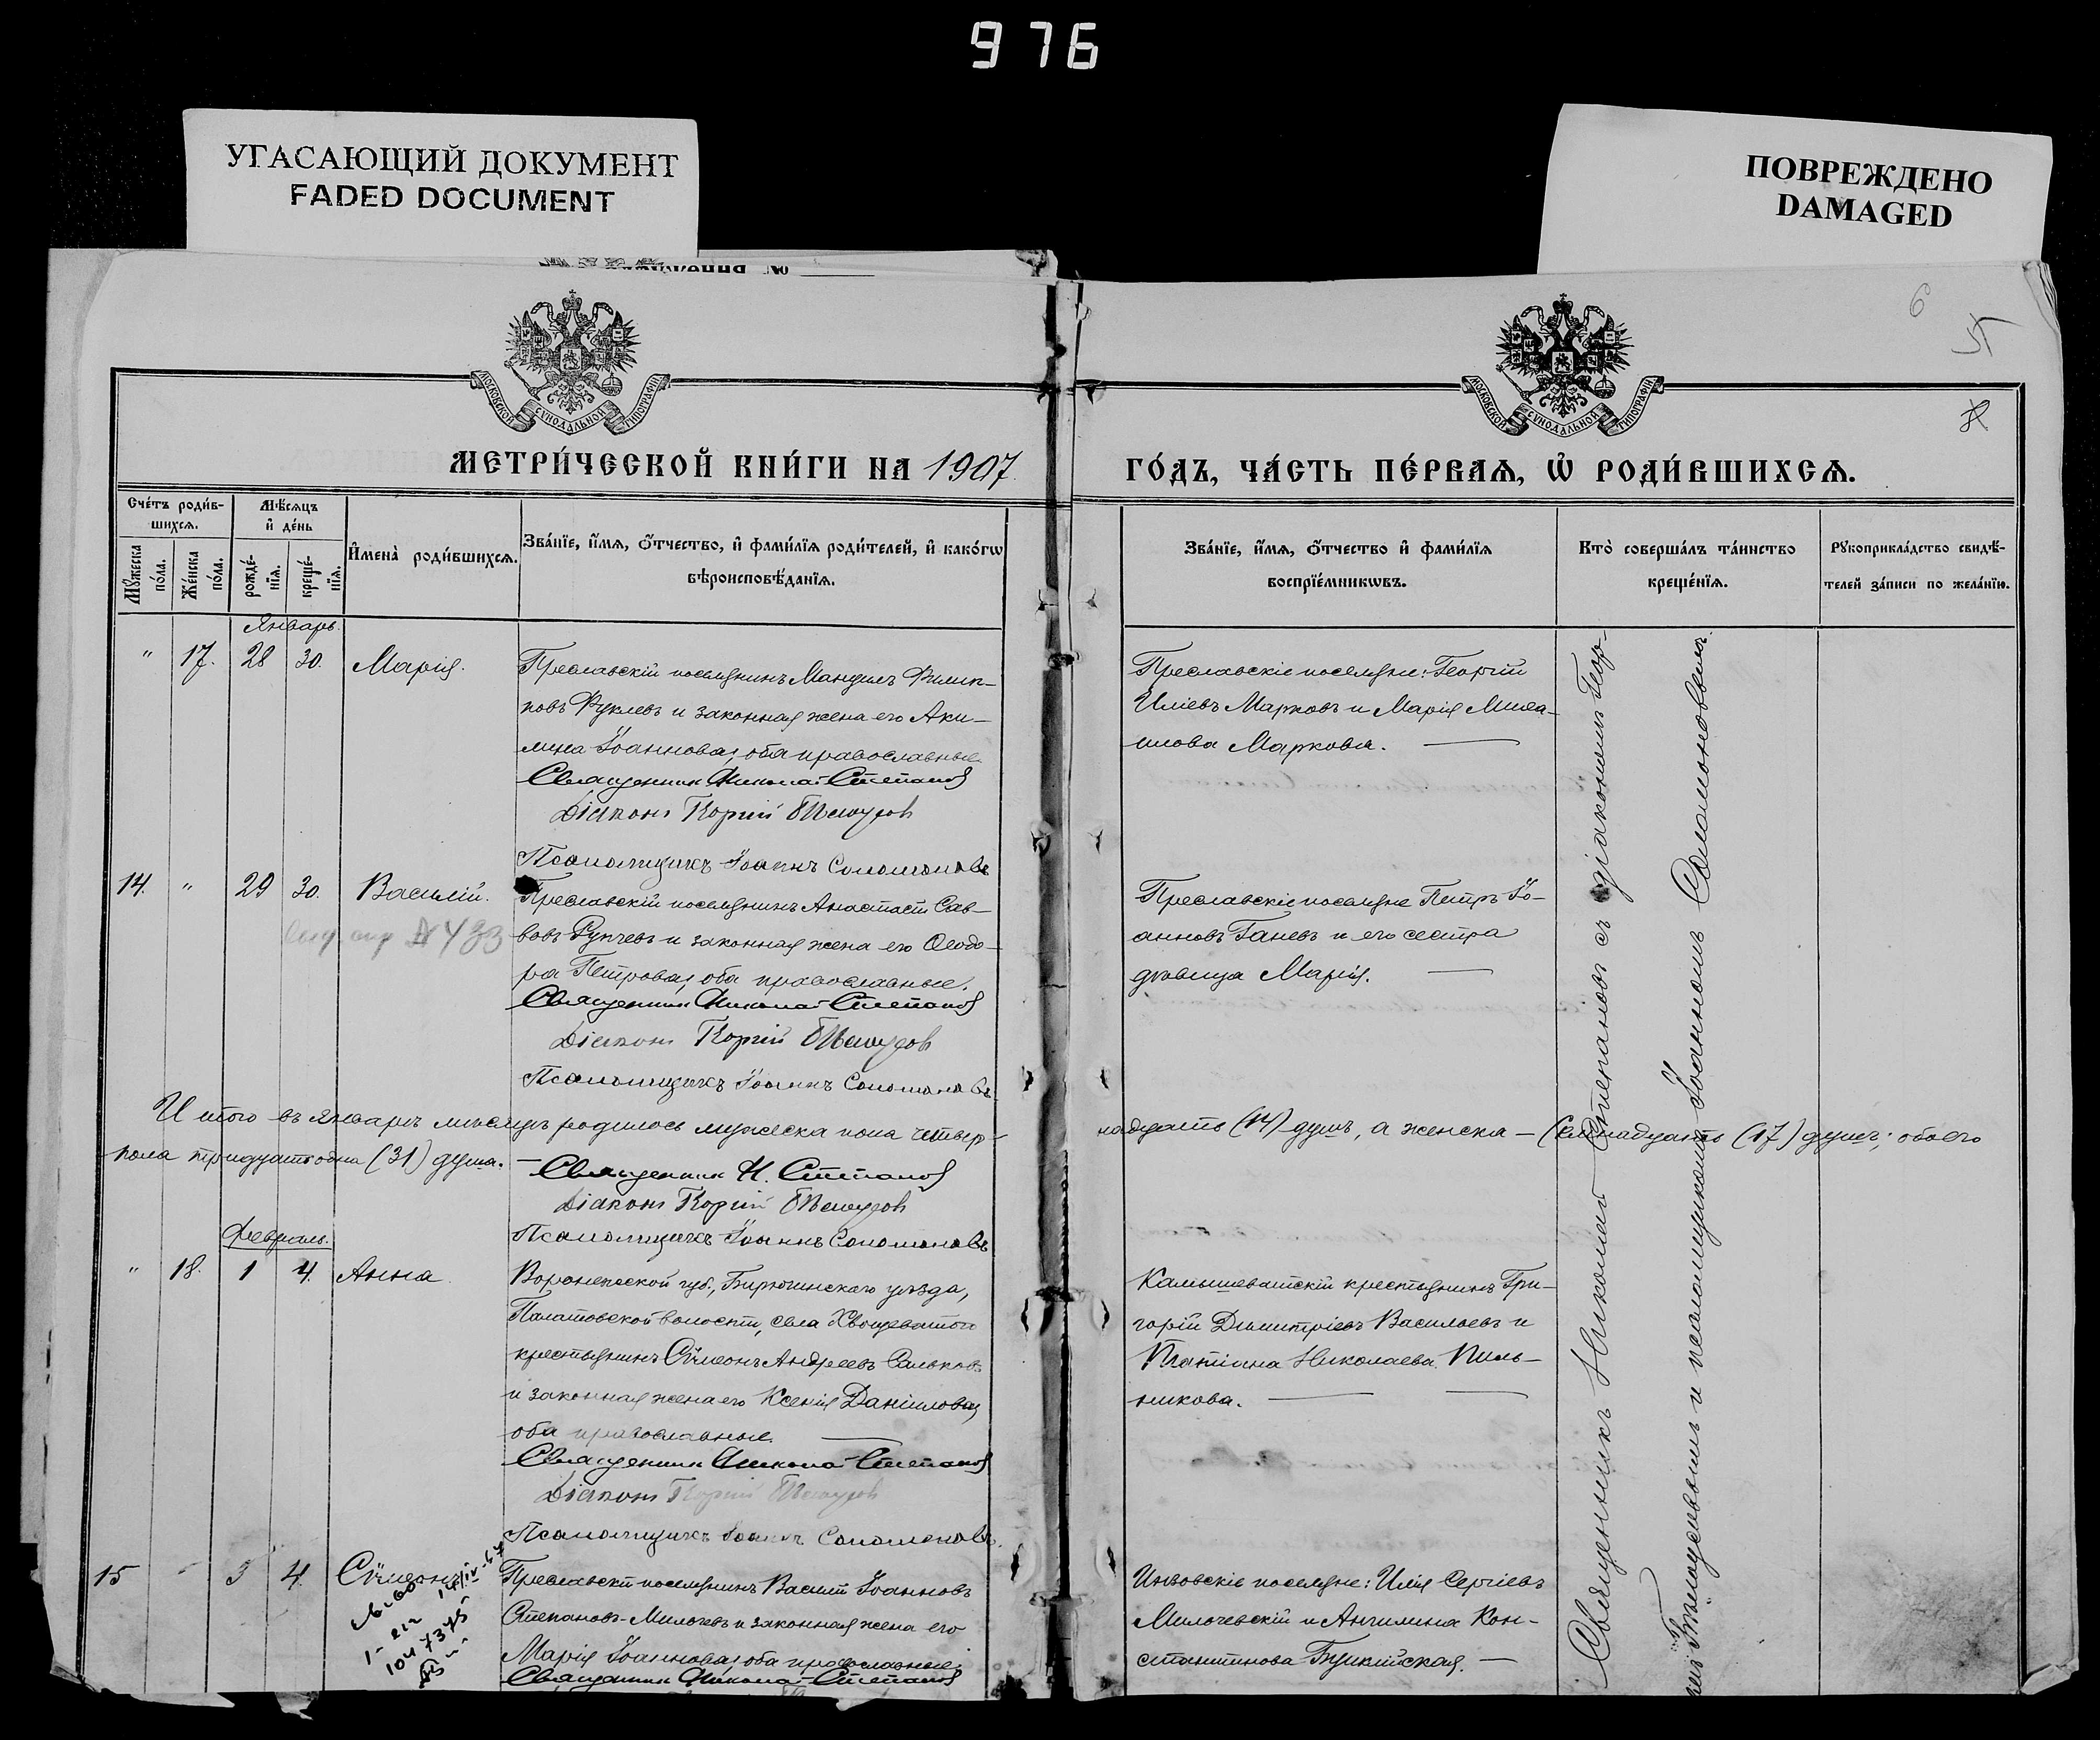 976
УГАСАЮЩИЙ ДОКУМЕНТ
FADED DOCUMENT
ПОВРЕЖДЕНО
DAMAGED
6
5
8
МОСКОВСКОЙ СѴНОДАЛЬНОЙ ТИПОГРАФІИ
МОСКОВСКОЙ СѴНОДАЛЬНОЙ ТИПОГРАФІИ
МЕТРИ́ЧЕСКОЙ КНИ́ГИ НА 1907
ГО́ДЪ, ЧА́СТЬ ПЕ́РВАѦ, Ѡ҆ РОДИ́ВШИХСѦ.
Сче́тъ роди́в-
шихсѧ.
Мѣ́сѧцъ
и҆ де́нь
Мꙋ́жеска
по́ла.
Же́нска
по́ла.
рожде́-
нїѧ.
креще́-
нїѧ.
И҆мена̀ роди́вшихсѧ.
Зва́нїе, и҆́мѧ, о҆́тчество, и҆ фами́лїѧ роди́телей, и҆ како́гѡ
вѣроисповѣ́данїѧ.
Зва́нїе, и҆́мѧ, о҆́тчество и҆ фами́лїѧ
воспрїе́мникѡвъ.
Кто̀ соверша́лъ та́инство
креще́нїѧ.
Рꙋкоприкла́дство свидѣ́-
телей за́писи по жела́нїю.
Январь.
" 17. 28 30. Марія.
Преславскій поселянинъ Филип-
повъ и законная жена его Аки-
лина Іоаннова, оба православные.
Священник Никола Степанов
Діаконъ Георгій
Псаломщикъ Іоаннъ Соломоновъ
Преславскіе поселяне: Георгій
Иліевъ Марковъ и Марія
Маркова.
14. " 29 30. Василій.
433
Преславскій поселянинъ Анастасъ Сав-
вовъ Рупчевъ и законная жена его Ѳеодо-
ра Петрова, оба православные.
Священник Никола Степанов
Діаконъ Георгій
Псаломщикъ Іоаннъ Соломоновъ
Преславскіе поселяне Петръ Іо-
анновъ Ганевъ и его сестра
дѣвица Марія.
Итого въ январѣ мѣсяцѣ родилось мужеска пола четыр-
надцать (14) душъ, а женска — семнадцать (17) душъ; обоего
пола тридцать одна (31) душа.
Священник Н. Степанов
Діаконъ Георгій
Псаломщикъ Іоаннъ Соломоновъ
Февраль.
" 18. 1 4. Анна
Воронежской губ., Бирюченскаго уѣзда,
Палатовской волости, села Хвощеватой
крестьянинъ Сѵмеонъ Андреевъ Сальковъ
и законная жена его Ксенія Даніилова,
оба православные.
Священник Никола Степанов
Діаконъ Георгій
Псаломщикъ Іоаннъ Соломоновъ
Камышеватскій крестьянинъ Гри-
горій Димитріевъ Васильевъ и
Татіана Николаева Пиль-
никова.
15 " 3 4. Сѵмеонъ
Преславскій поселянинъ Василій Іоанновъ
Степановъ-Милочевъ и законная жена его
Марія Іоаннова, оба православные.
Священник Никола Степанов
Инзовскіе поселяне: Илія Сергіевъ
Милочевскій и Ангелина Кон-
стантинова
Священникъ Николай Степановъ съ діакономъ Геор-
гіемъ и псаломщикомъ Іоанномъ Соломоновымъ.